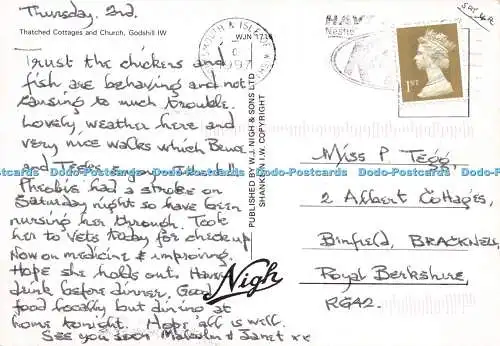 Thursday. 2nd.
Thatched Cottages and Church, Godshill IW
WJN 1739
Trust the chickens and
fish are behaving and not
causing to much trouble.
Lovely weather here and
very nice walks which
and enjoy. I think
Phoebis had a stroke on
Saturday night so have been
nursing her through. Took
her to Vets today for check up
Now on medicine & improving.
Hope she holds out. Have
drink before dinner. Good
food locally but dining at
home tonight. Hope all is well.
See you soon Malcolm & Janet xx
PUBLISHED BY W.J. NIGH & SONS LTD
SHANKLIN I.W. COPYRIGHT
Nigh
1997
1ST
Miss P. Tegg,
2 Albert Cottages,
Binfield, BRACKNELL
Royal Berkshire,
RG42.
Dodo-Postcards Dodo-Postcards Dodo-Postcards Dodo-Postcards